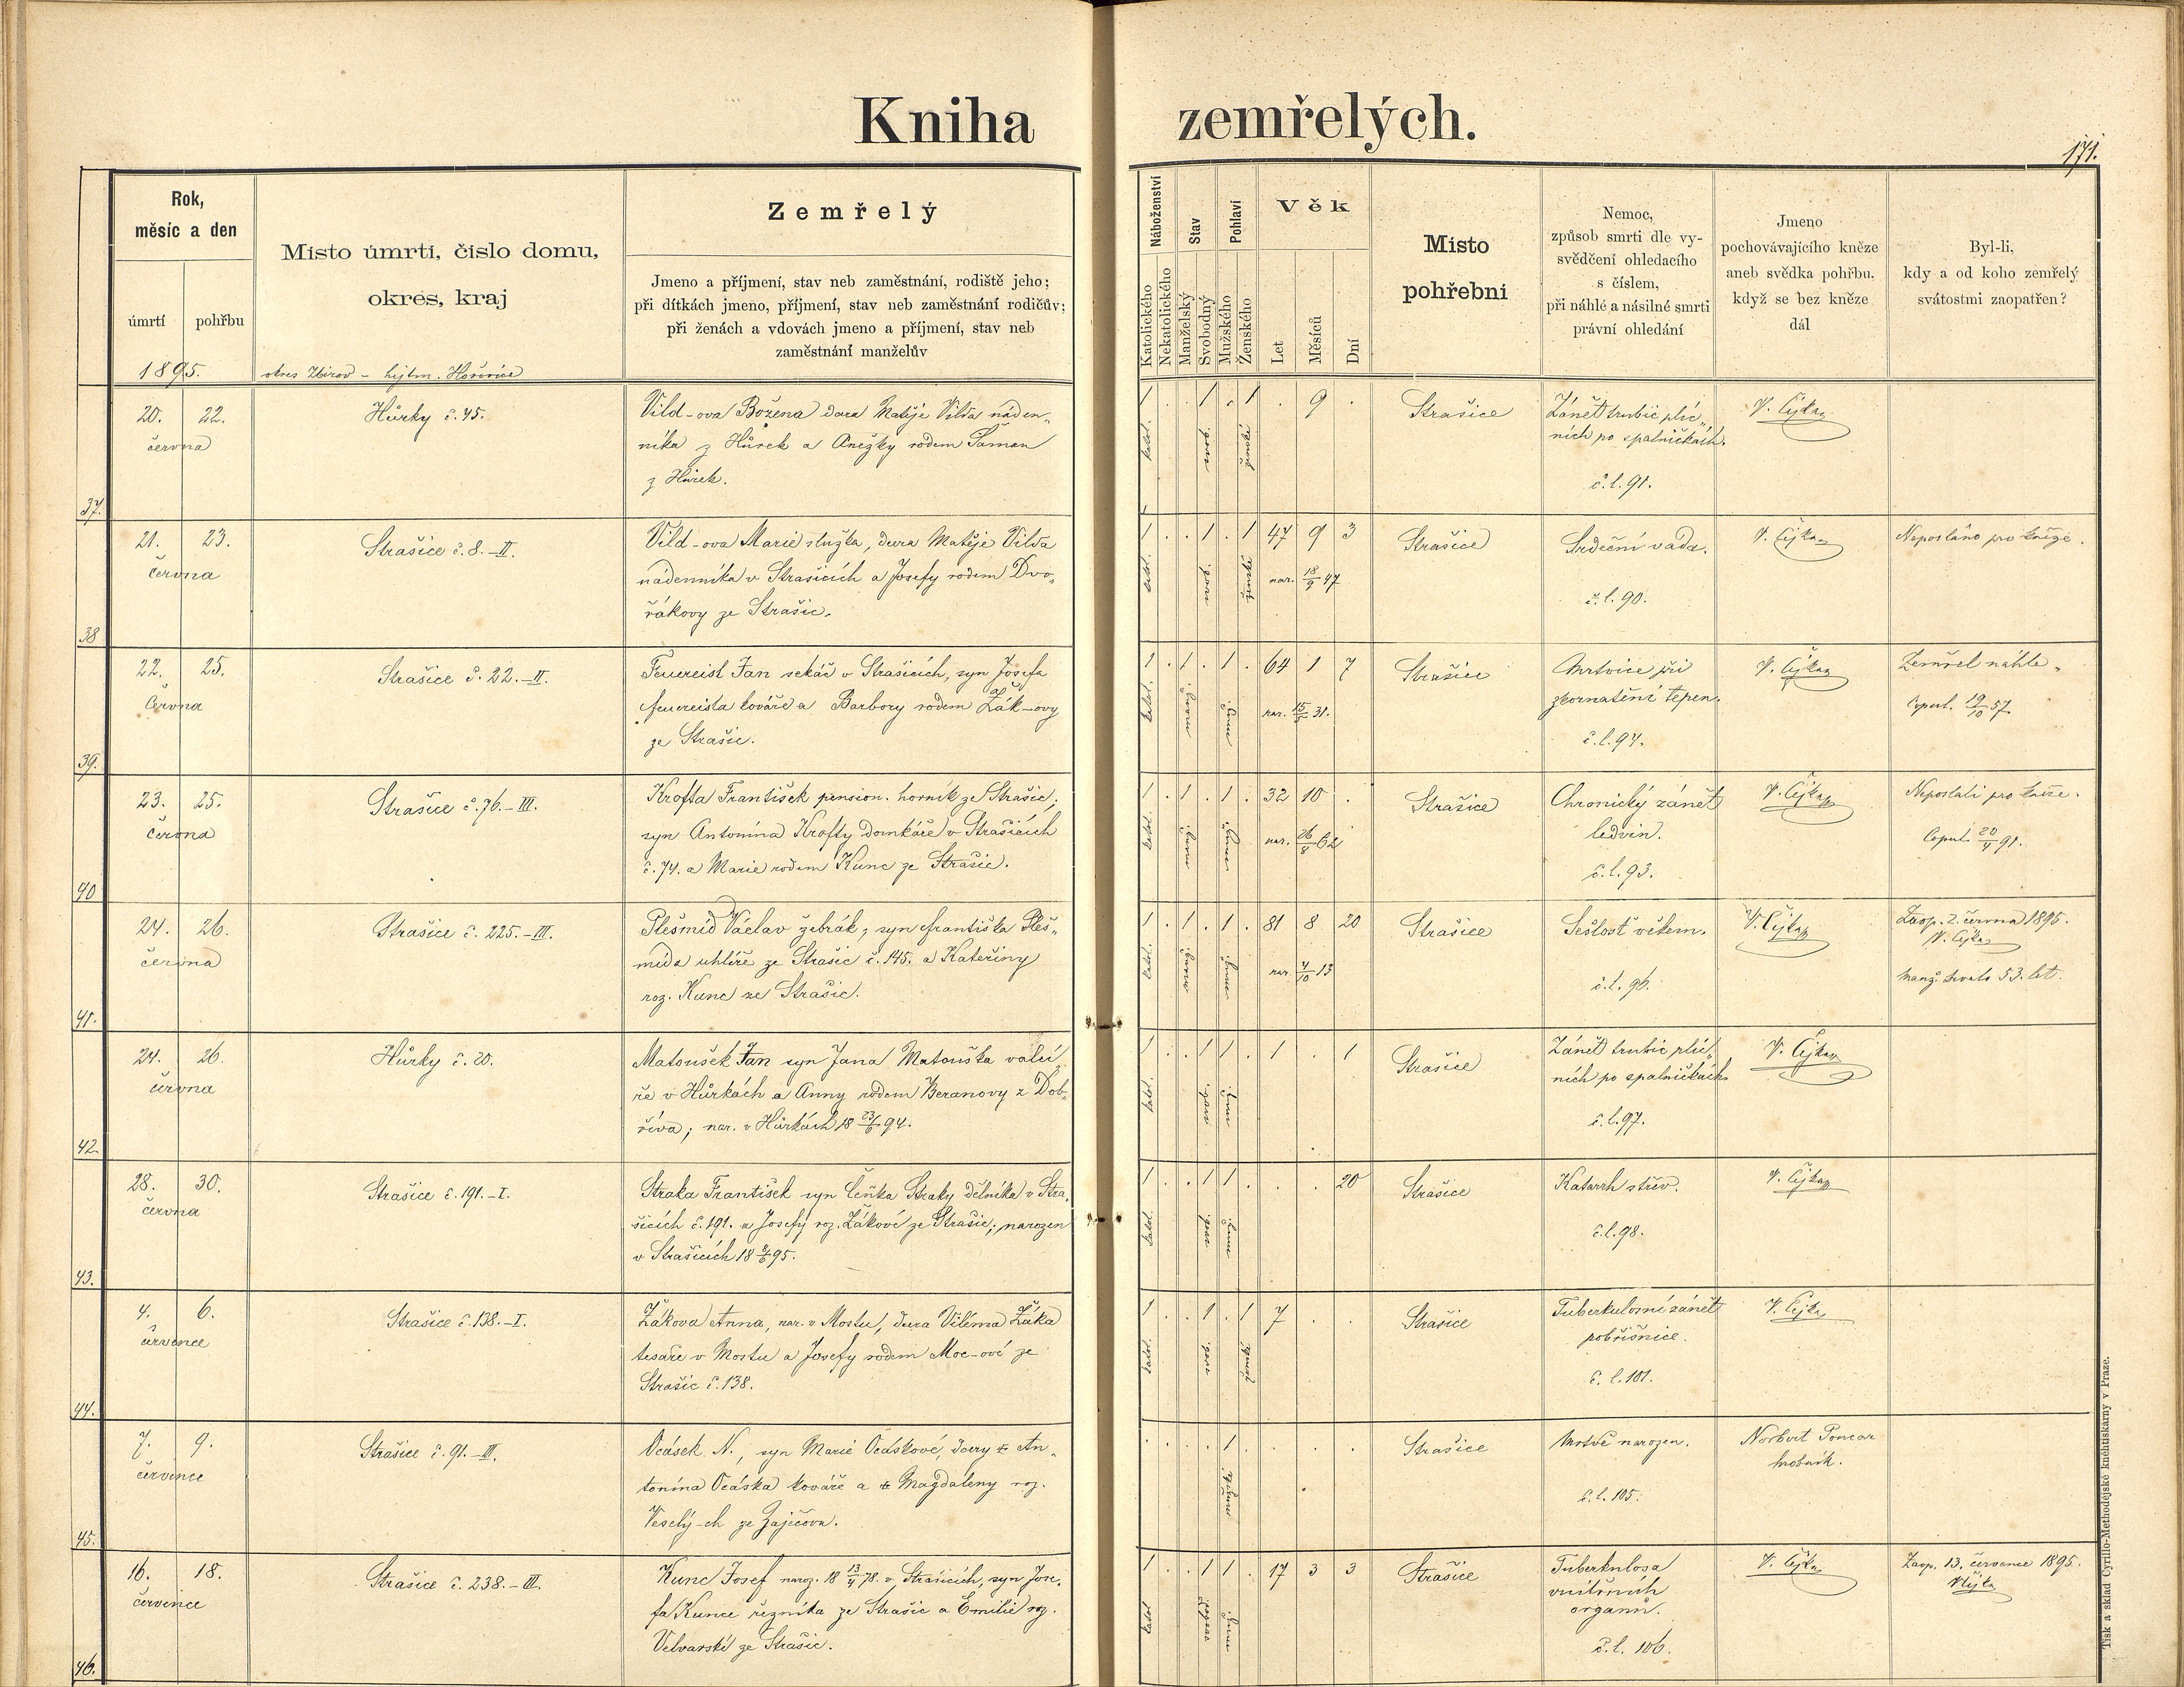 Kniha zemřelých.
171.
Rok,
měsíc a den
úmrtí pohřbu
1895.
Misto úmrti, čislo domu,
okres, kraj
okres Zbirov - hejtm. Hořovice
Zemřelý
Jmeno a příjmení, stav neb zaměstnání, rodiště jeho;
při dítkách jmeno, příjmení, stav neb zaměstnání rodičův;
při ženách a vdovách jmeno a příjmení, stav neb
zaměstnání manželův
Náboženství
Katolického
Nekatolického
Stav
Manželský
Svobodný
Pohlaví
Mužského
Ženského
Věk
Let
Měsíců
Dní
Misto
pohřebni
Nemoc,
způsob smrti dle vy-
svědčení ohledacího
s číslem,
při náhlé a násilné smrti
právní ohledání
Jmeno
pochovávajícího kněze
aneb svědka pohřbu.
když se bez kněze
dál
Byl-li,
kdy a od koho zemřelý
svátostmi zaopatřen?
37.
20. 22.
června
Hůrky č. 45.
Vild-ova Božena dcera Matěje Vilda náden-
níka z Hůrek a Anežky rodem Šaman
z Hůrek.
katol.
ženské
1 . . 1 . 1 . 9 .
Strašice
Zánět trubic plic-
ních po spalničkách.
č. l. 91.
V. Čejka
38
21. 23.
června
Strašice č. 8.-II.
Vild-ova Marie služka, dcera Matěje Vilda
nádenníka v Strašicích a Josefy rodem Dvo-
řákovy ze Strašic.
katol.
1 . . 1 . 1 47 9 3
nar. 18/9 47
Strašice
Srdeční vada.
č. l. 90.
V. Čejka
Neposláno pro kněze.
39.
22. 25.
června
Strašice č. 22.-II.
Feuereisl Jan sekáč v Strašicích, syn Josefa
feuereisla kováře a Barbory rodem Žák-ovy
ze Strašic.
katol.
1 . 1 . 1 . 64 1 7
nar. 15/5 31.
Strašice
Mrtvice při
zkornatění tepen.
č. l. 94.
V. Čejka
Zemřel náhle.
Copul. 19/10 57
40
23. 25.
června
Strašice č. 76.-III.
Krofta František pension. horník ze Strašic;
syn Antonína Krofty domkáře v Strašicích
č. 74. a Marie rodem Kunc ze Strašic.
katol.
1 . 1 . 1 . 32 10 .
nar. 26/8 62
Strašice
Chronický zánět
ledvin.
č. l. 93.
V. Čejka
Neposlali pro kněze.
Copul. 20/4 91.
41.
24. 26.
června
Strašice č. 225.-III.
Plešmíd Václav žebrák, syn františka Pleš-
mída uhlíře ze Strašic č. 145. a Kateřiny
roz. Kunc ze Strašic.
katol.
1 . 1 . 1 . 81 8 20
nar. 4/10 13
Strašice
Sešlost věkem.
č. l. 96.
V. Čejka
Zaop. 2. června 1895.
V. Čejka
manž. trvalo 53. let.
42.
24. 26.
června
Hůrky č. 20.
Matoušek Jan syn Jana Matouška valcí-
ře v Hůrkách a Anny rodem Beranovy z Dob-
říva; nar. v Hůrkách 18 23/6 94.
katol.
1 . . 1 1 . 1 . 1
Strašice
Zánět trubic plic-
ních po spalničkách
č. l. 97.
V. Čejka
43.
28. 30.
června
Strašice č. 191.-I.
Straka František syn Čeňka Straky dělníka v Stra-
šicích č. 191. a Josefy roz. Žákové ze Strašic; narozen
v Strašicích 18 8/6 95.
katol.
1 . . 1 1 . . . 20
Strašice
Katarrh střev.
č. l. 98.
V. Čejka
44.
4. 6.
července
Strašice č. 138.-I.
Žákova Anna, nar. v Mostu, dcera Viléma Žáka
tesaře v Mostu a Josefy rodem Moc-ové ze
Strašic č. 138.
katol.
1 . . 1 . 1 7 . .
Strašice
Tuberkulosní zánět
pobřišnice.
č. l. 101.
V. Čejka
45.
7. 9.
července
Strašice č. 91.-III.
Ocásek N., syn Marie Ocáskové, dcery † An-
tonína Ocáska kováře a † Magdaleny roz.
Veselý-ch ze Zaječova.
. . . . 1 . . .
Strašice
Mrtvě narozen.
č. l. 105.
Norbert Poncar
hrobník.
46.
16. 18.
července
Strašice č. 238.-III.
Kunc Josef naroz. 18 13/4 78. v Strašicích, syn Jose-
fa Kunce řezníka ze Strašic a Emilie roz.
Velvarské ze Strašic.
katol
1 . . 1 1 . 17 3 3
Strašice
Tuberkulosa
vnitřních
organů.
č. l. 106.
V. Čejka
Zaop. 13. července 1895.
V. Čejka
Tisk a sklad Cyrillo-Methodějské knihtiskárny v Praze.